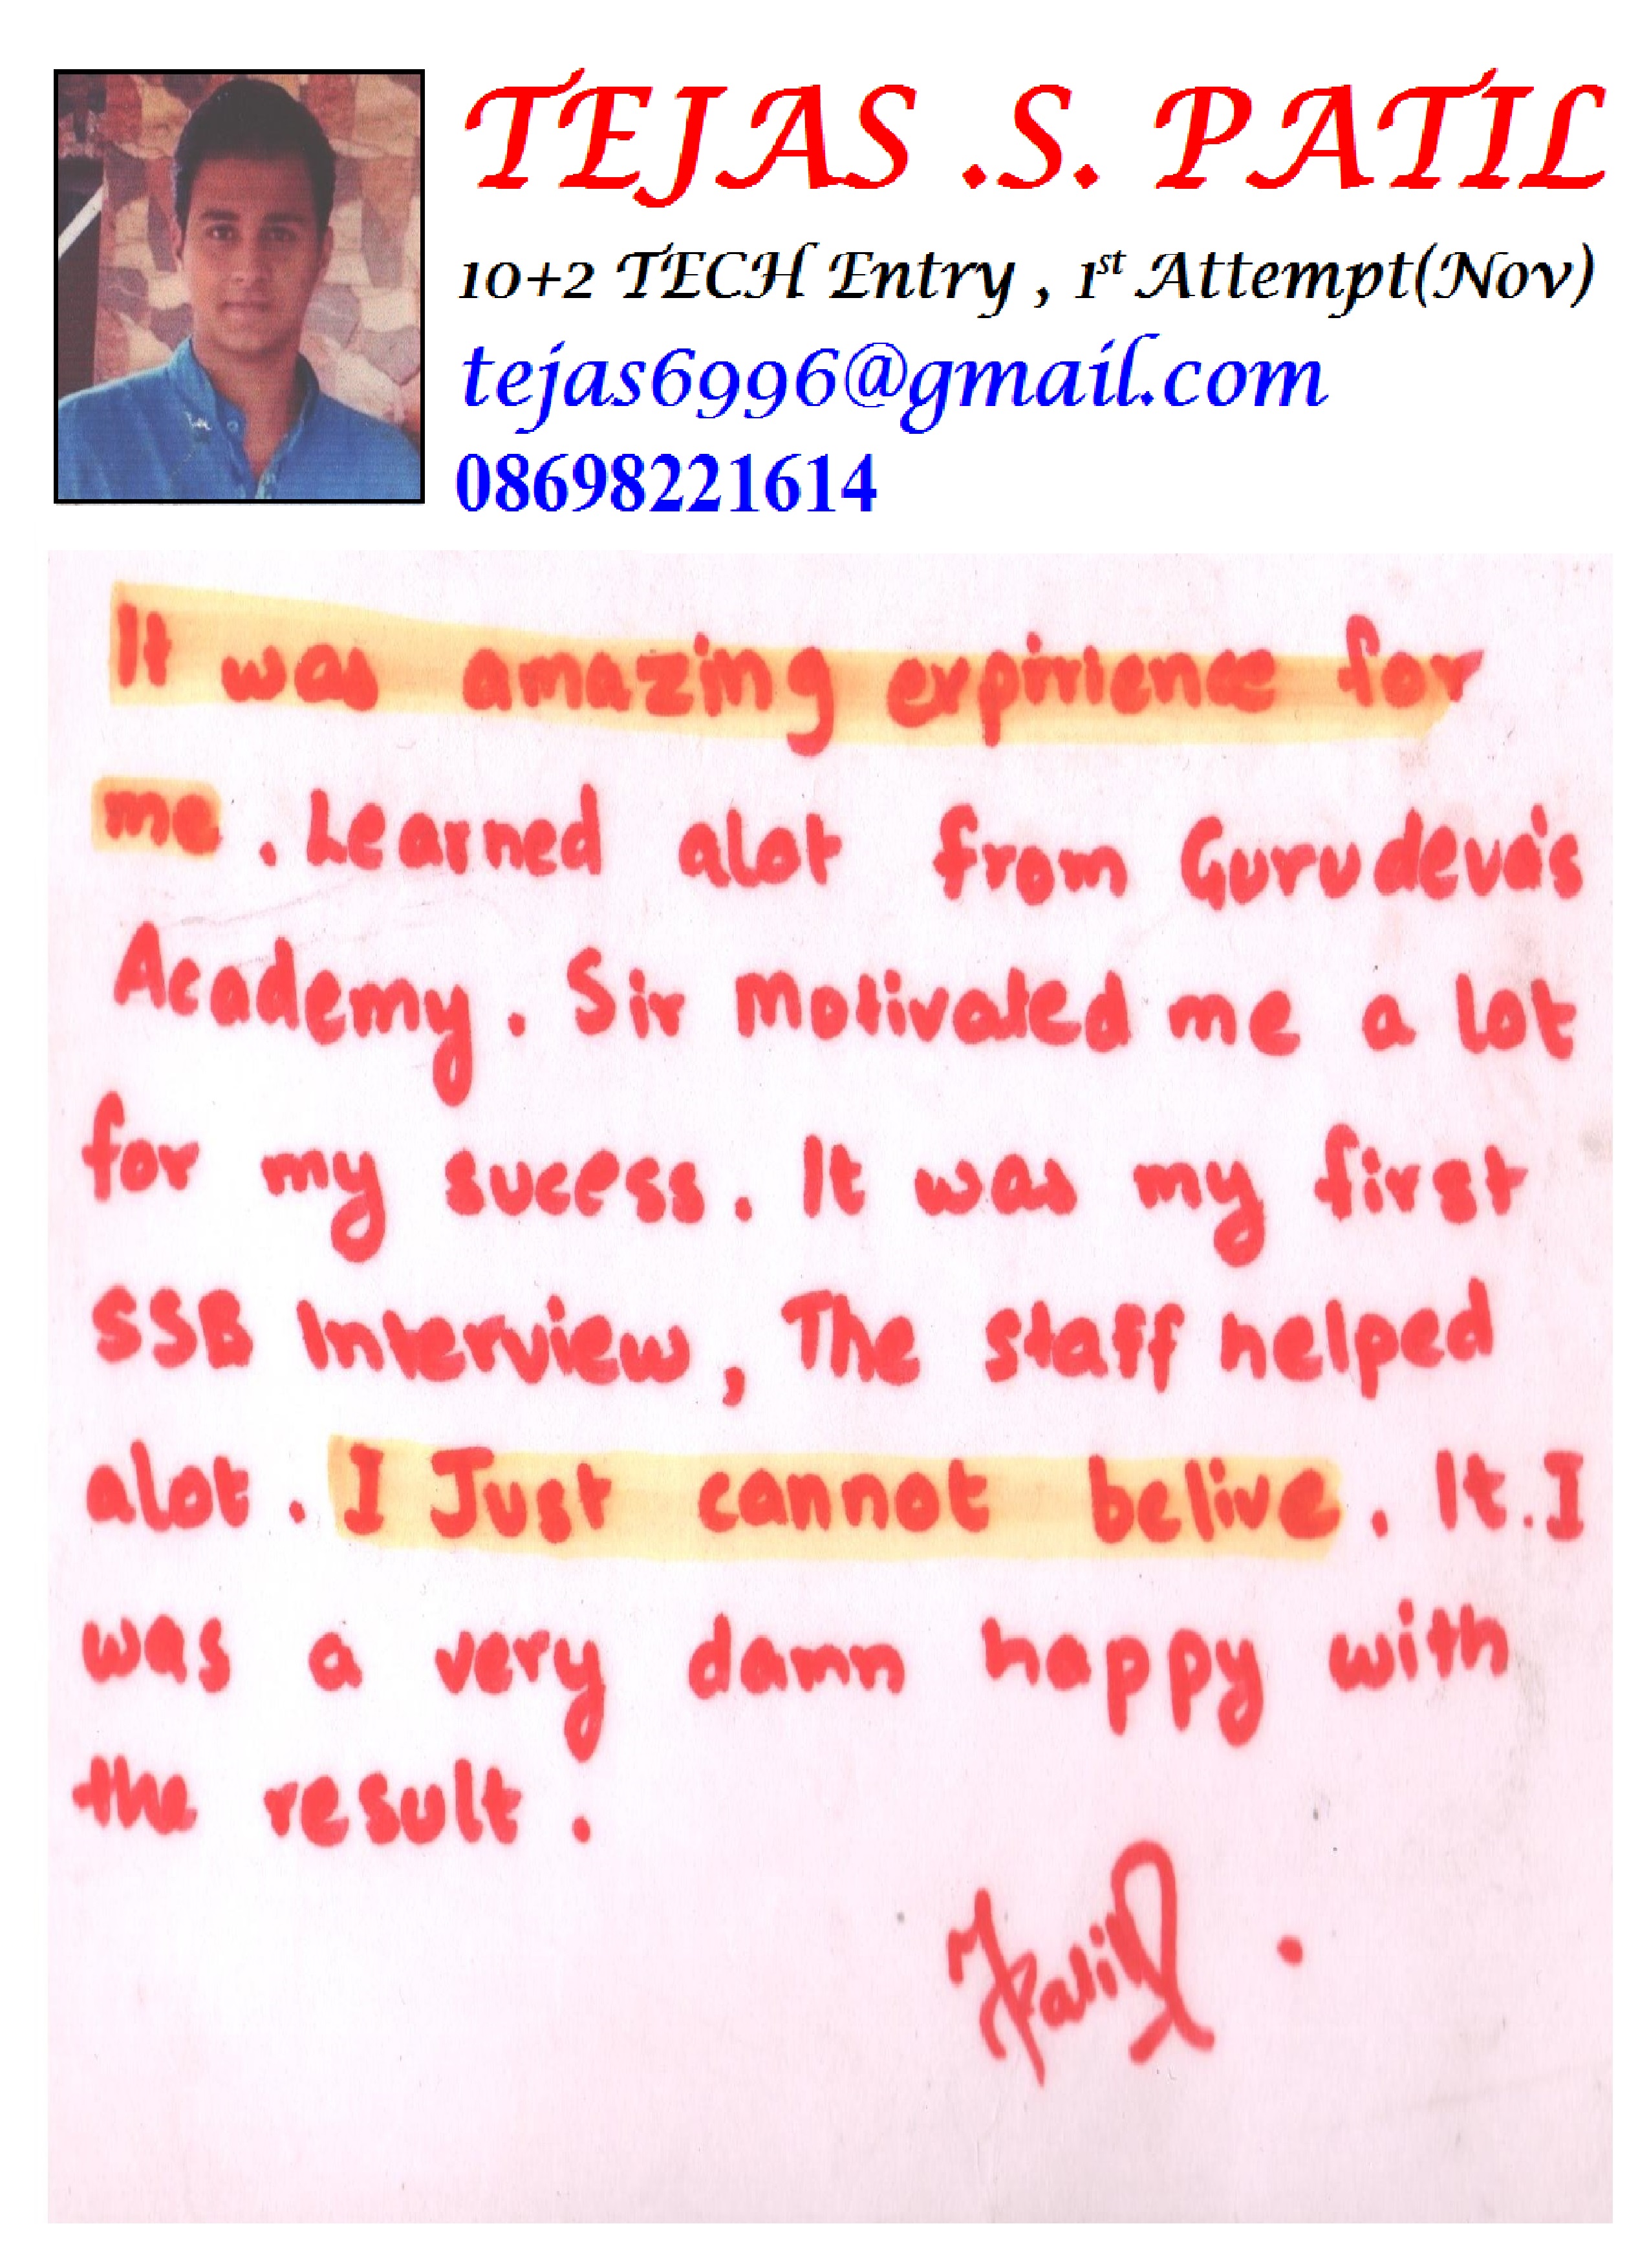 TEJAS .S. PATIL
10+2 TECH Entry , 1st Attempt(Nov)
tejas6996@gmail.com
08698221614
It was amazing expirience for
me . Learned alot from Gurudeva's
Academy . Sir motivated me a lot
for my sucess . It was my first
SSB Interview , The staff helped
alot . I Just cannot belive . It . I
was a very damn happy with
the result .